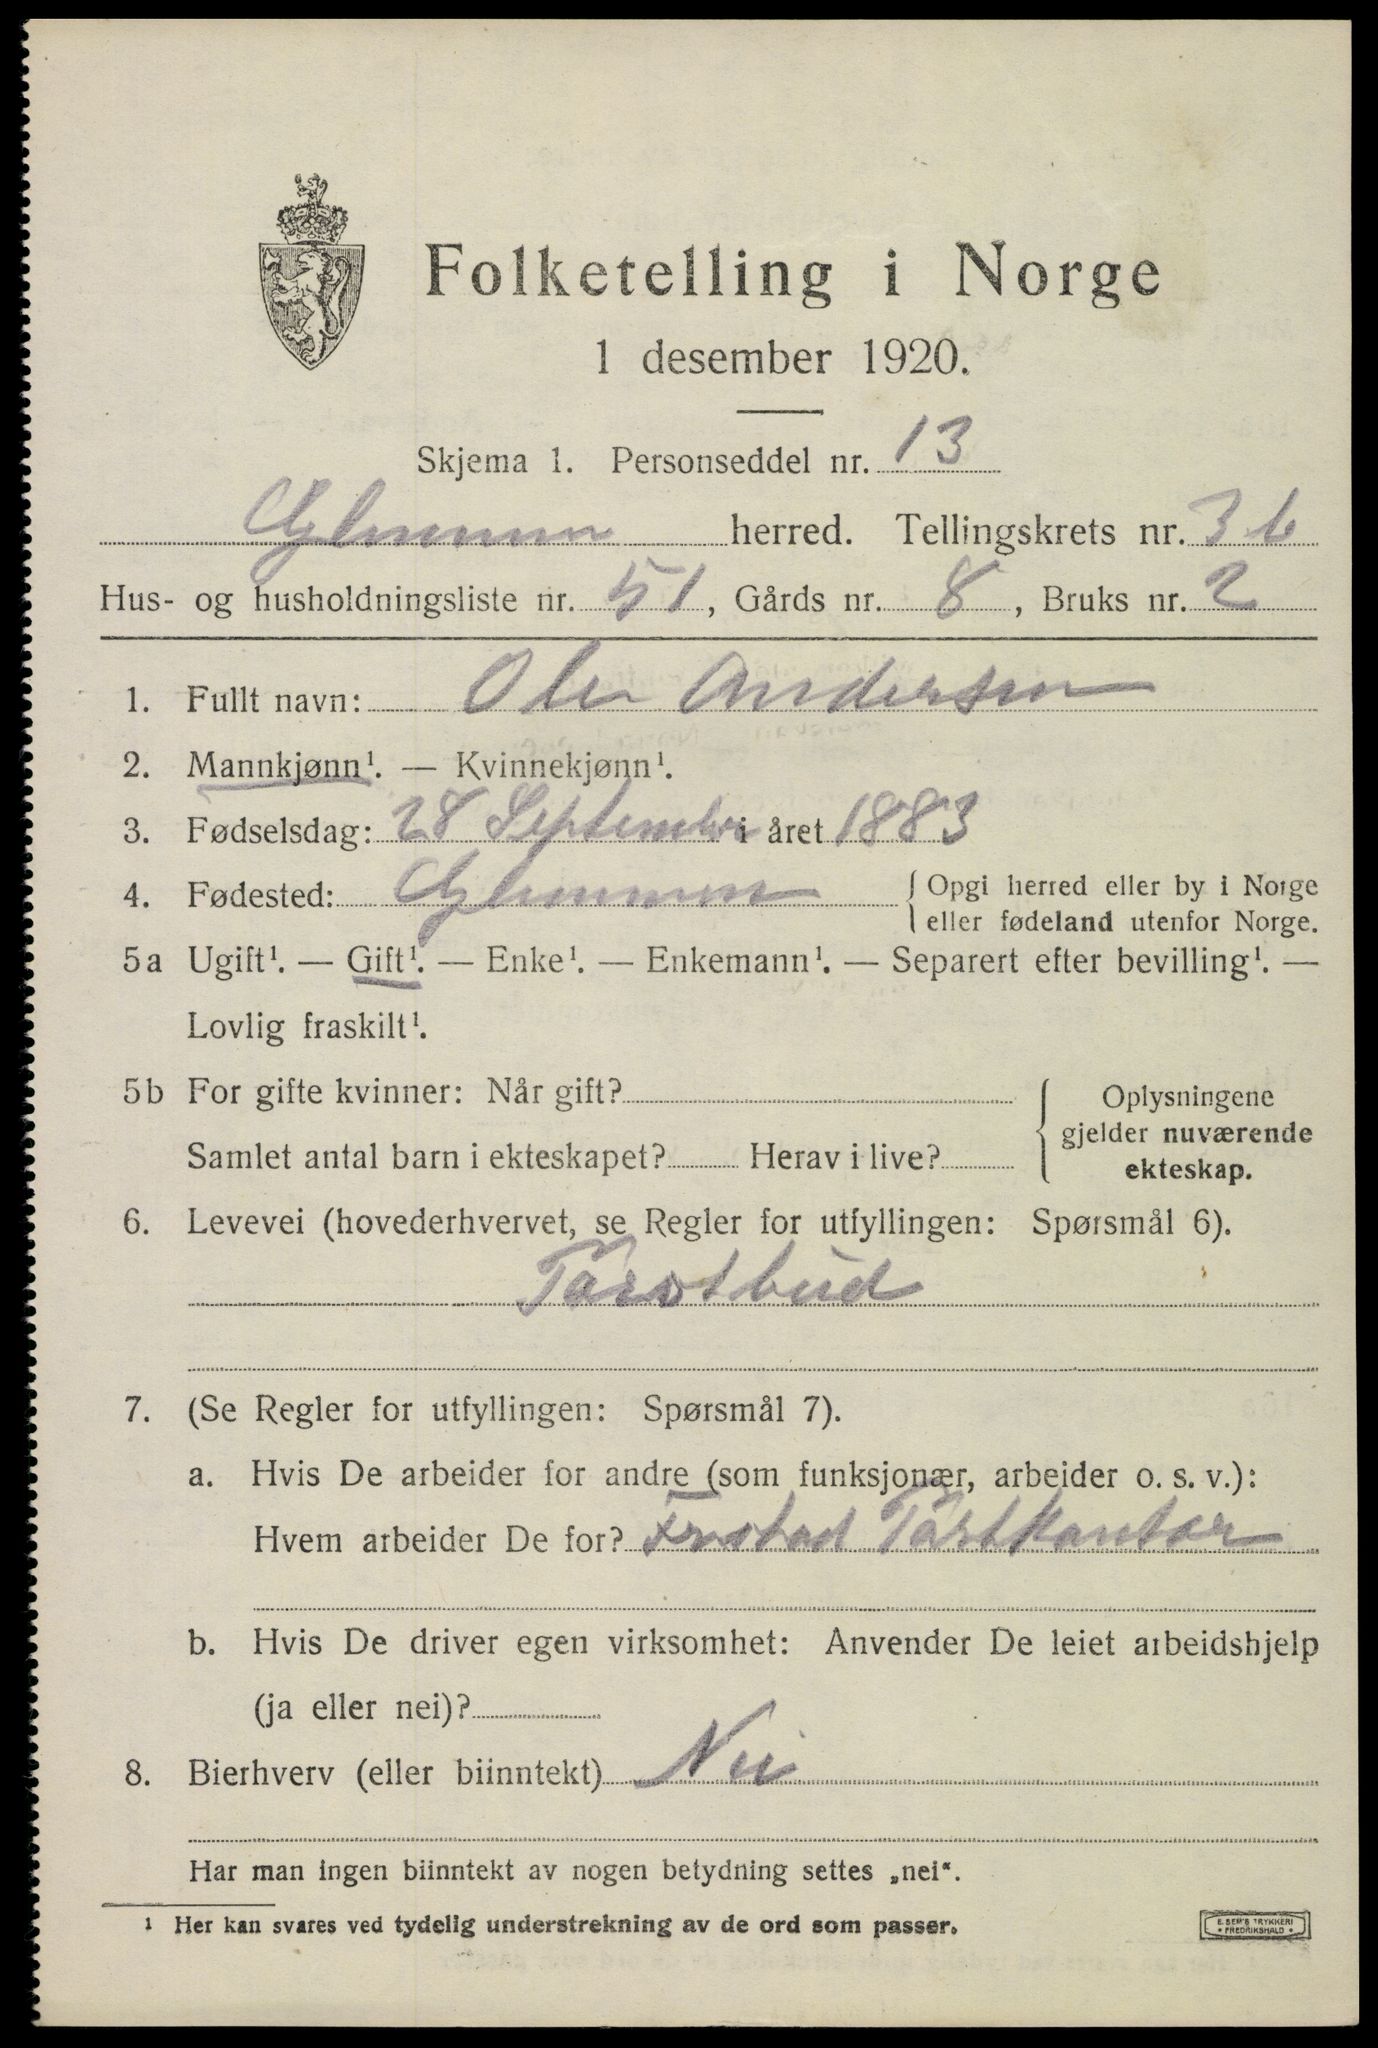 Folketelling i Norge
1 desember 1920.
Skjema 1. Personseddel nr. 13
Glemmen herred. Tellingskrets nr. 3b
Hus- og husholdningsliste nr. 51, Gårds nr. 8, Bruks nr. 2
1. Fullt navn: Ole Andersen
2. Mannkjønn¹. — Kvinnekjønn¹.
3. Fødselsdag: 28 September i året 1883
4. Fødested: Glemmen { Opgi herred eller by i Norge
eller fødeland utenfor Norge.
5a Ugift¹. — Gift¹. — Enke¹. — Enkemann¹. — Separert efter bevilling¹. —
Lovlig fraskilt¹.
5b For gifte kvinner: Når gift? { Oplysningene
gjelder nuværende
Samlet antal barn i ekteskapet? Herav i live?
ekteskap.
6. Levevei (hovederhvervet, se Regler for utfyllingen: Spørsmål 6).
7. (Se Regler for utfyllingen: Spørsmål 7).
a. Hvis De arbeider for andre (som funksjonær, arbeider o. s. v.):
Hvem arbeider De for?
b. Hvis De driver egen virksomhet: Anvender De leiet arbeidshjelp
(ja eller nei)?
8. Bierhverv (eller biinntekt) Nei
Har man ingen biinntekt av nogen betydning settes „nei“.
¹ Her kan svares ved tydelig understrekning av de ord som passer.
E. SEM'S TRYKKERI
• FREDRIKSHALD •